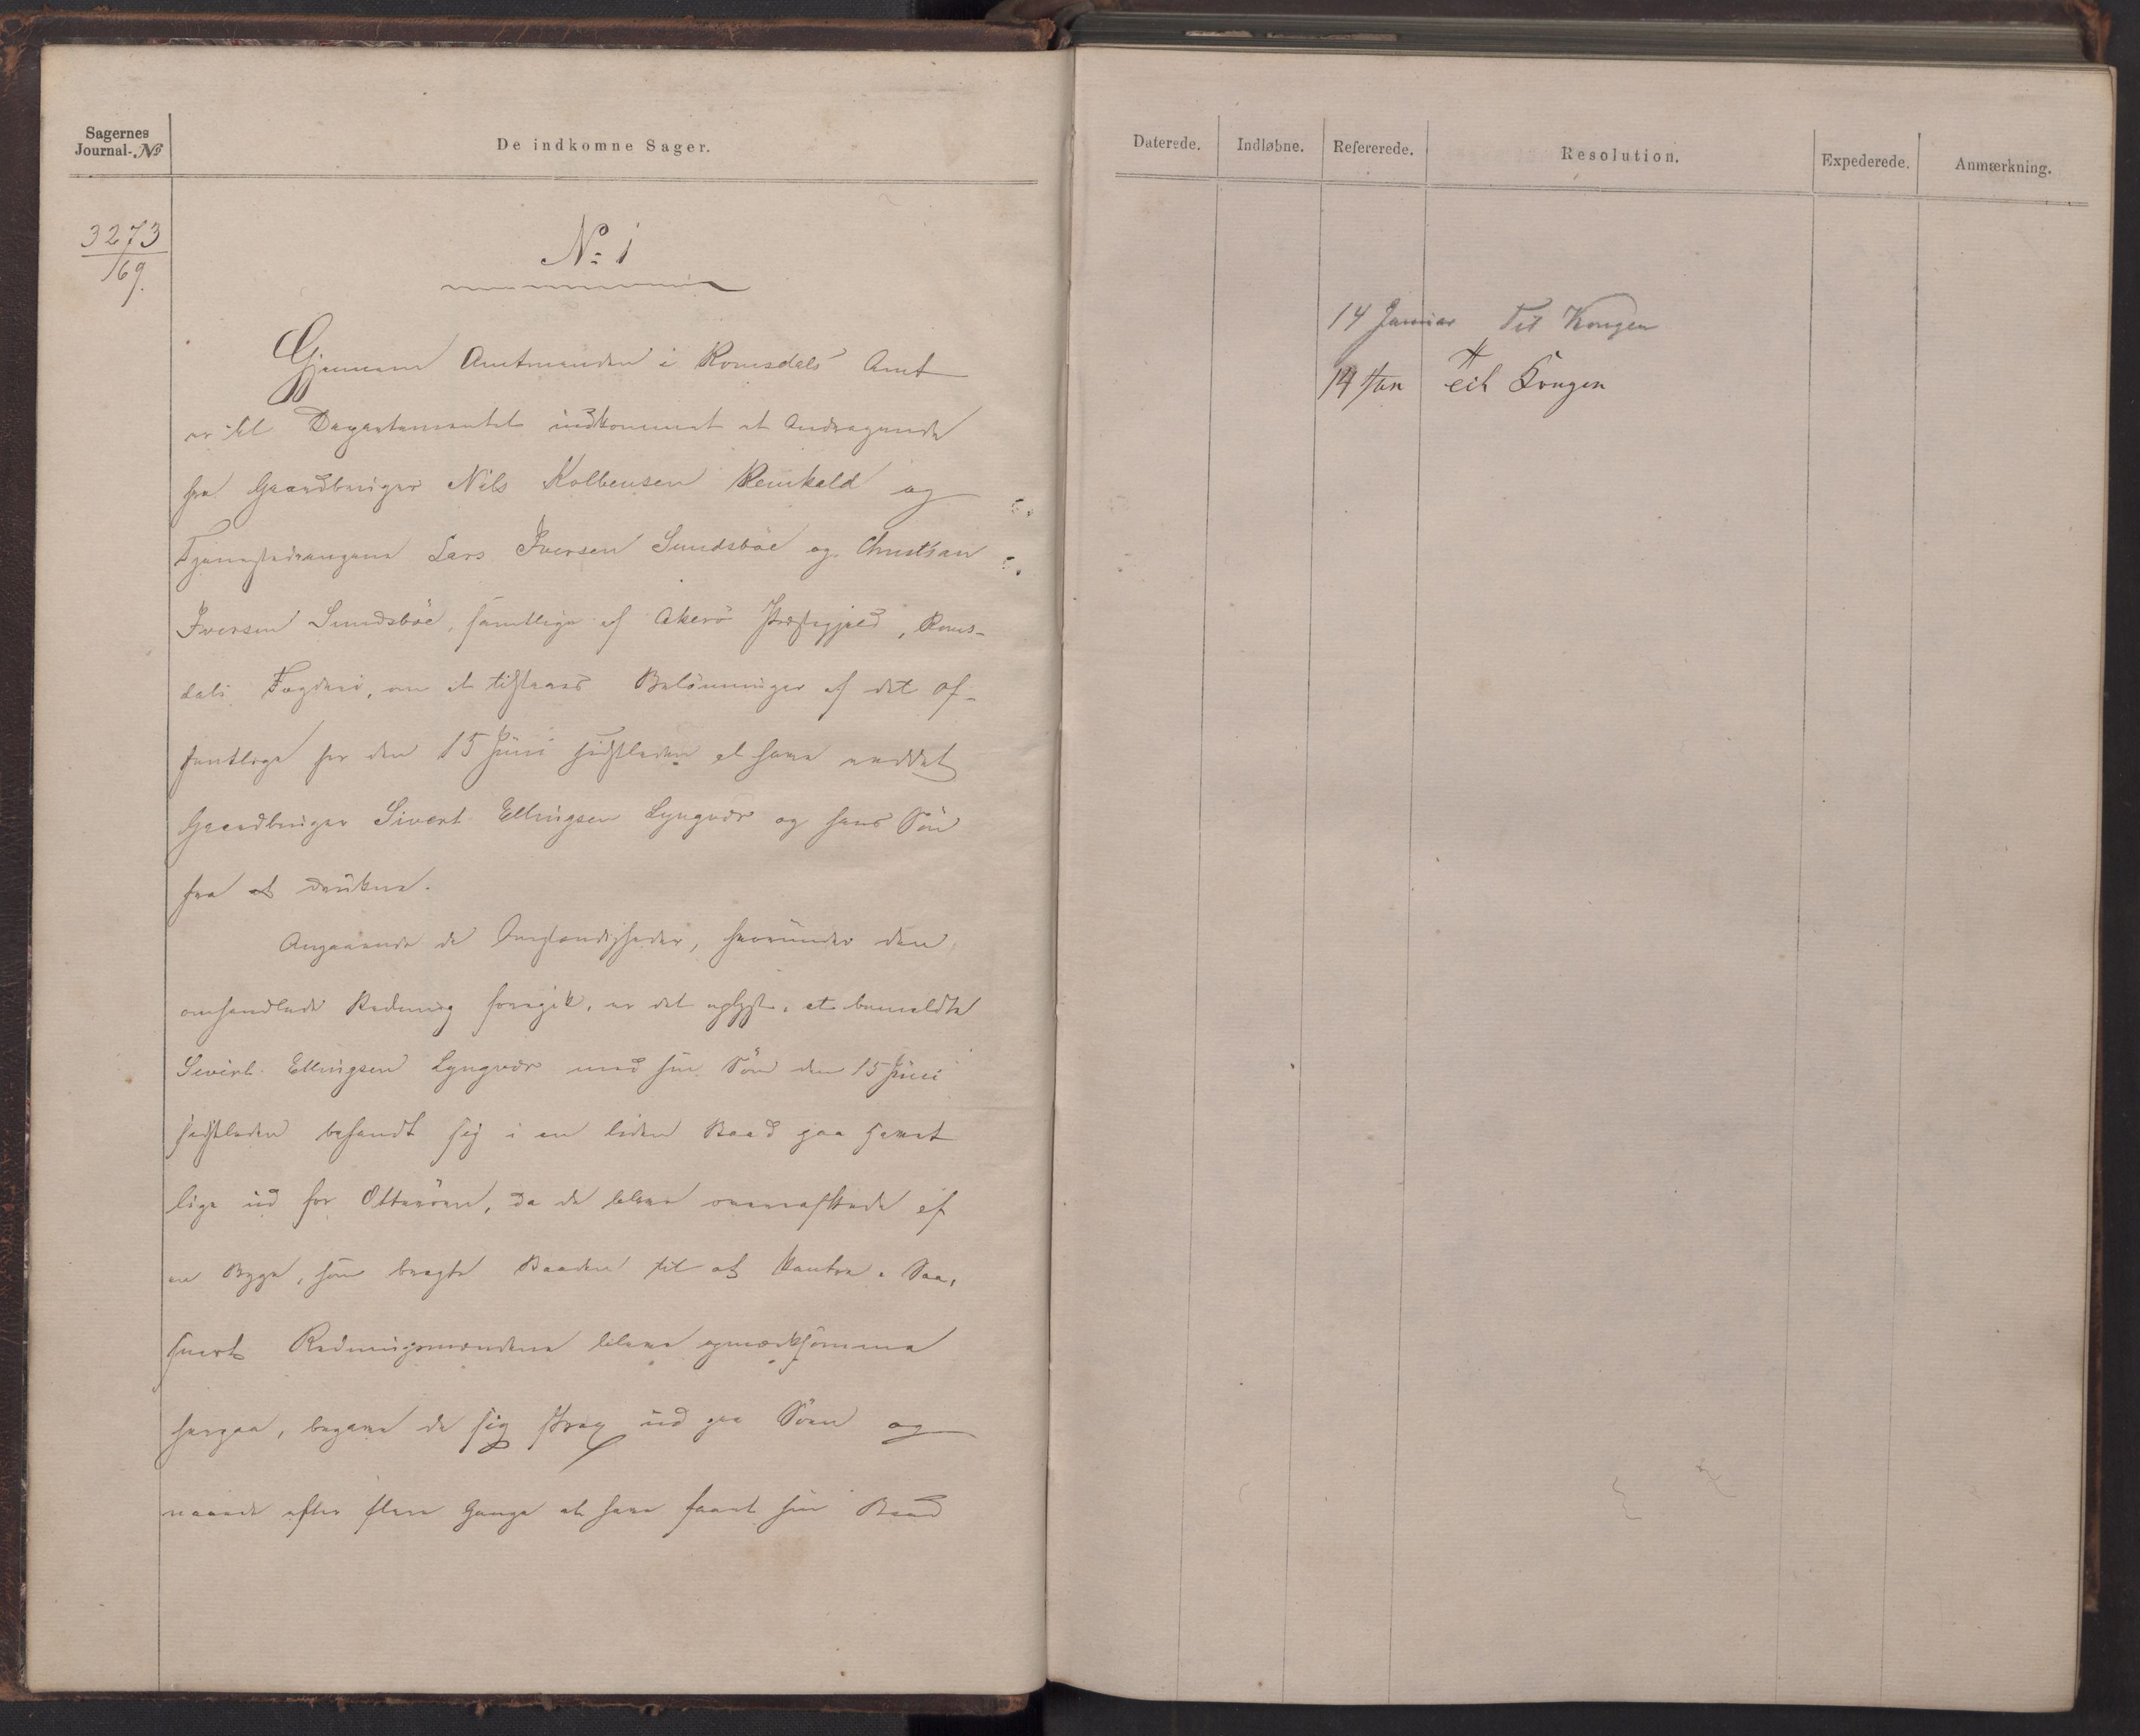 Sagernes
Journal-No
De indkomne Sager.
3273
/69.
No 1
Gjennem Amtmanden i Romsdals Amt
er til Departementet indkommet et Andragende
fra Gaardbruger Nils Kolbensen Reinkald og
Tjenestedrengene Lars Iversen Sundsböe og Christian
Iversen Sundsböe, samtlige af Akerö Præstegjeld, Roms-
dals Fogderi, om at tilstaaes Belönninger af det Of-
fentlige for den 15 Juni sidstleden at have reddet
Gaardbruger Sivert Ellingsen Lyngvær og hans Sön
fra at drukne.
Angaaende de Omstændigheder, hvorunder den
omhandlede Redning foregik, er det oplyst, at bemeldte
Sivert Ellingsen Lyngvær med sin Sön den 15 Juni
sidstleden befandt sig i en liden Baad paa Havet
lige ud for Otteröen, da de bleve overraskede af
en Byge, som bragte Baaden til at kantre. Saa-
snart Redningsmændene bleve opmærksomme
herpaa, begave de sig strax ud paa Söen og
naaede efter flere Gange at have faaet sin Baad
Daterede.
Indløbne.
Refererede.
Resolution.
Expederede.
Anmærkning.
14 Januar Til Kongen
14 Jan Til Kongen